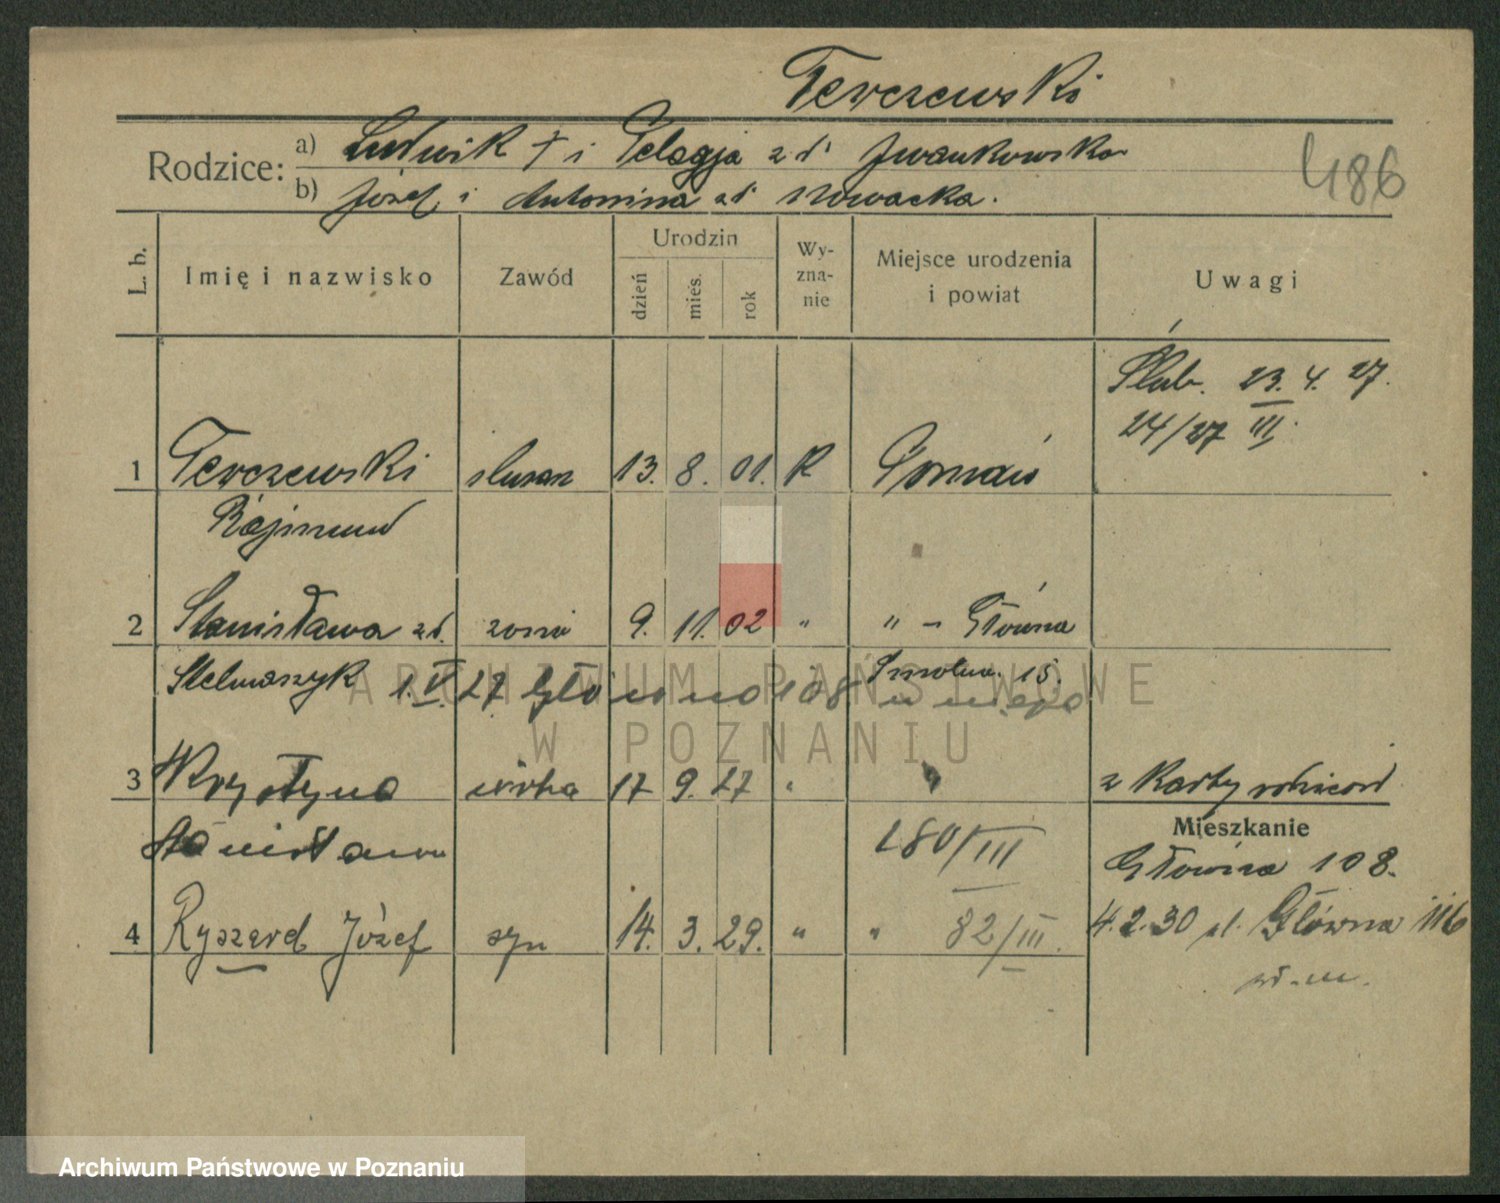 Terczewski
Rodzice: a) Ludwik † i Pelagja zd. Iwankowska
486
b) Józef i Antonina zd. Nowacka.
L. b. Imię i nazwisko Zawód Urodzin dzień mieś. rok Wy-zna-nie Miejsce urodzenia i powiat Uwagi
Ślub. 23. 4. 27.
24/27 III.
1 Terczewski ślusarz 13. 8. 01. K Poznań
Rajmund
2 Stanisława zd. żona 9. 11. 02 " " - Główna
Stelmaszyk 1. V. 27 Główna 108 Smolna 15.
3 Krystyna córka 17 9. 27 " z karty rodziców
Mieszkanie
Stanisława 280/III Główna 108.
4 Ryszard Józef syn 14. 3. 29. " " 82/III. 4.2.30 ul. Główna 116
ARCHIWUM PAŃSTWOWE
W POZNANIU
Archiwum Państwowe w Poznaniu